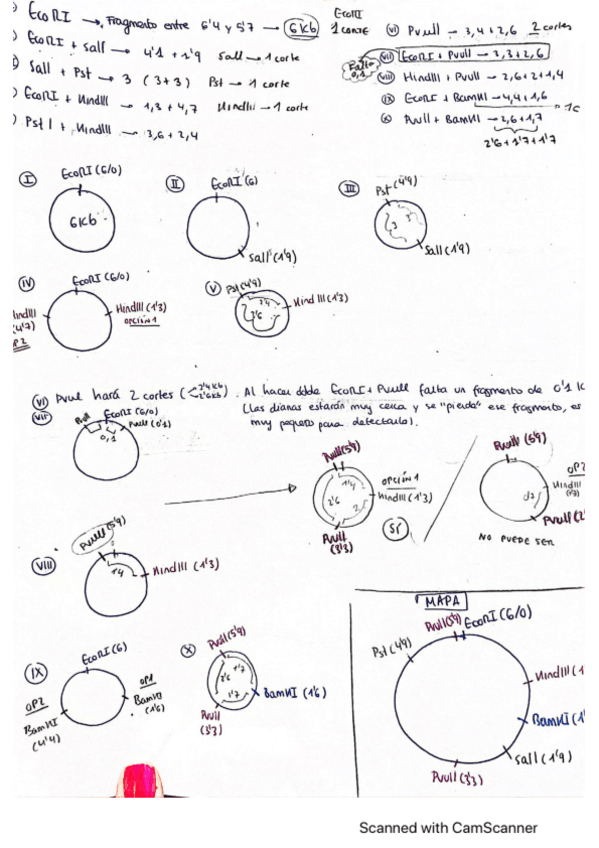 EcoRI → Fragmento entre 6'4 y 5'7 → 6Kb
EcoRI
1 corte
EcoRI + SalI → 4'1 + 1'9 SalI → 1 corte
SalI + Pst → 3 (3+3) Pst → 1 corte
EcoRI + HindIII → 1,3 + 4,7 HindIII → 1 corte
Pst I + HindIII → 3,6 + 2,4
VI PvuII → 3,4 + 2,6 2 cortes
VII EcoRI + PvuII → 3,3 + 2,6
Falta 0,1
VIII HindIII + PvuII → 2,6 + 2 + 1,4
IX EcoRI + BamHI → 4,4 + 1,6 → 1c
X PvuII + BamHI → 2,6 + 1,7
2'6 + 1'7 + 1'7
I
EcoRI (6/0)
6Kb
II
EcoRI (6)
SalI (1'9)
III
Pst (4'9)
3
3
SalI (1'9)
IV
EcoRI (6/0)
HindIII (1'3)
OPCIÓN 1
HindIII
(4'7)
OP2
V
Pst (4'9)
2'4
3'6
HindIII (1'3)
VI PvuII hará 2 cortes (3'4Kb 2'6Kb). Al hacer doble EcoRI + PvuII falta un fragmento de 0'1 K
(las dianas estarán muy cerca y se "pierde" ese fragmento, es
muy pequeño para detectarlo).
VII
PvuII
EcoRI (6/0)
PvuII (0'1)
0,1
PvuII (5'9)
1'4
2'6
2
OPCIÓN 1
HindIII (1'3)
PvuII
(3'3)
SÍ
PvuII (5'9)
OP2
HindIII
PvuII (2
NO PUEDE SER
VIII
PvuII (5'9)
1'4
HindIII (1'3)
IX
EcoRI (6)
OP1
BamHI
(1'6)
OP2
BamHI
(4'4)
X
PvuII (5'9)
2'6
1'7
1'7
BamHI (1'6)
PvuII
(3'3)
MAPA
PvuII (5'9) EcoRI (6/0)
Pst (4'9)
HindIII (1
BamHI (1'
SalI (1'9)
PvuII (3'3)
Scanned with CamScanner